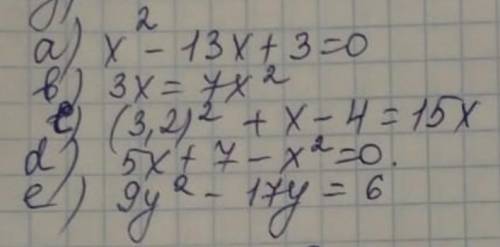 a) x² - 13x + 3 = 0
b) 3x = 7x²
c) (3,2)² + x - 4 = 15x
d) 5x + 7 - x² = 0.
e) 9y² - 17y = 6